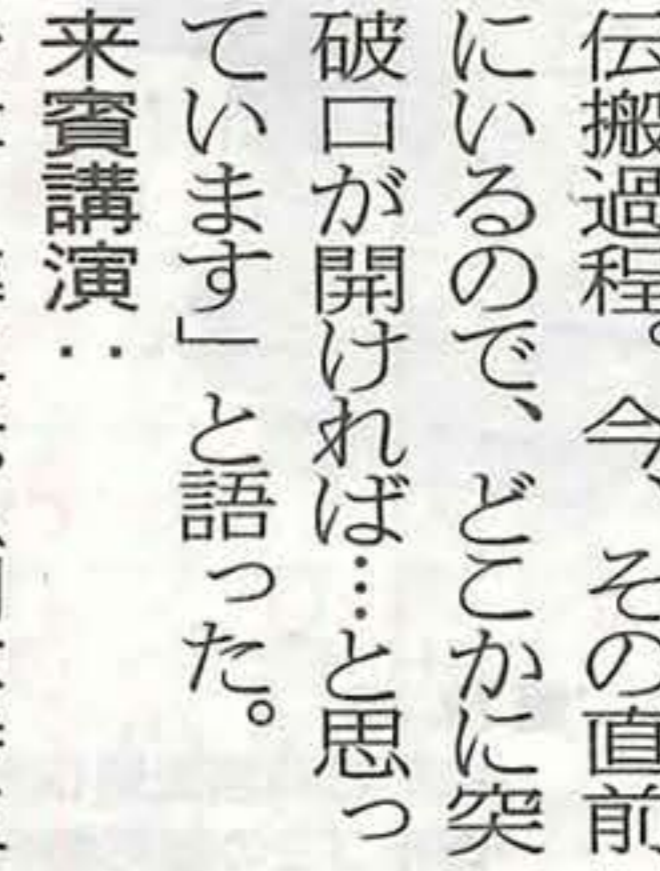 伝搬過程。今、その直前
にいるので、どこかに突
破口が開ければ…と思っ
ています」と語った。
来賓講演：